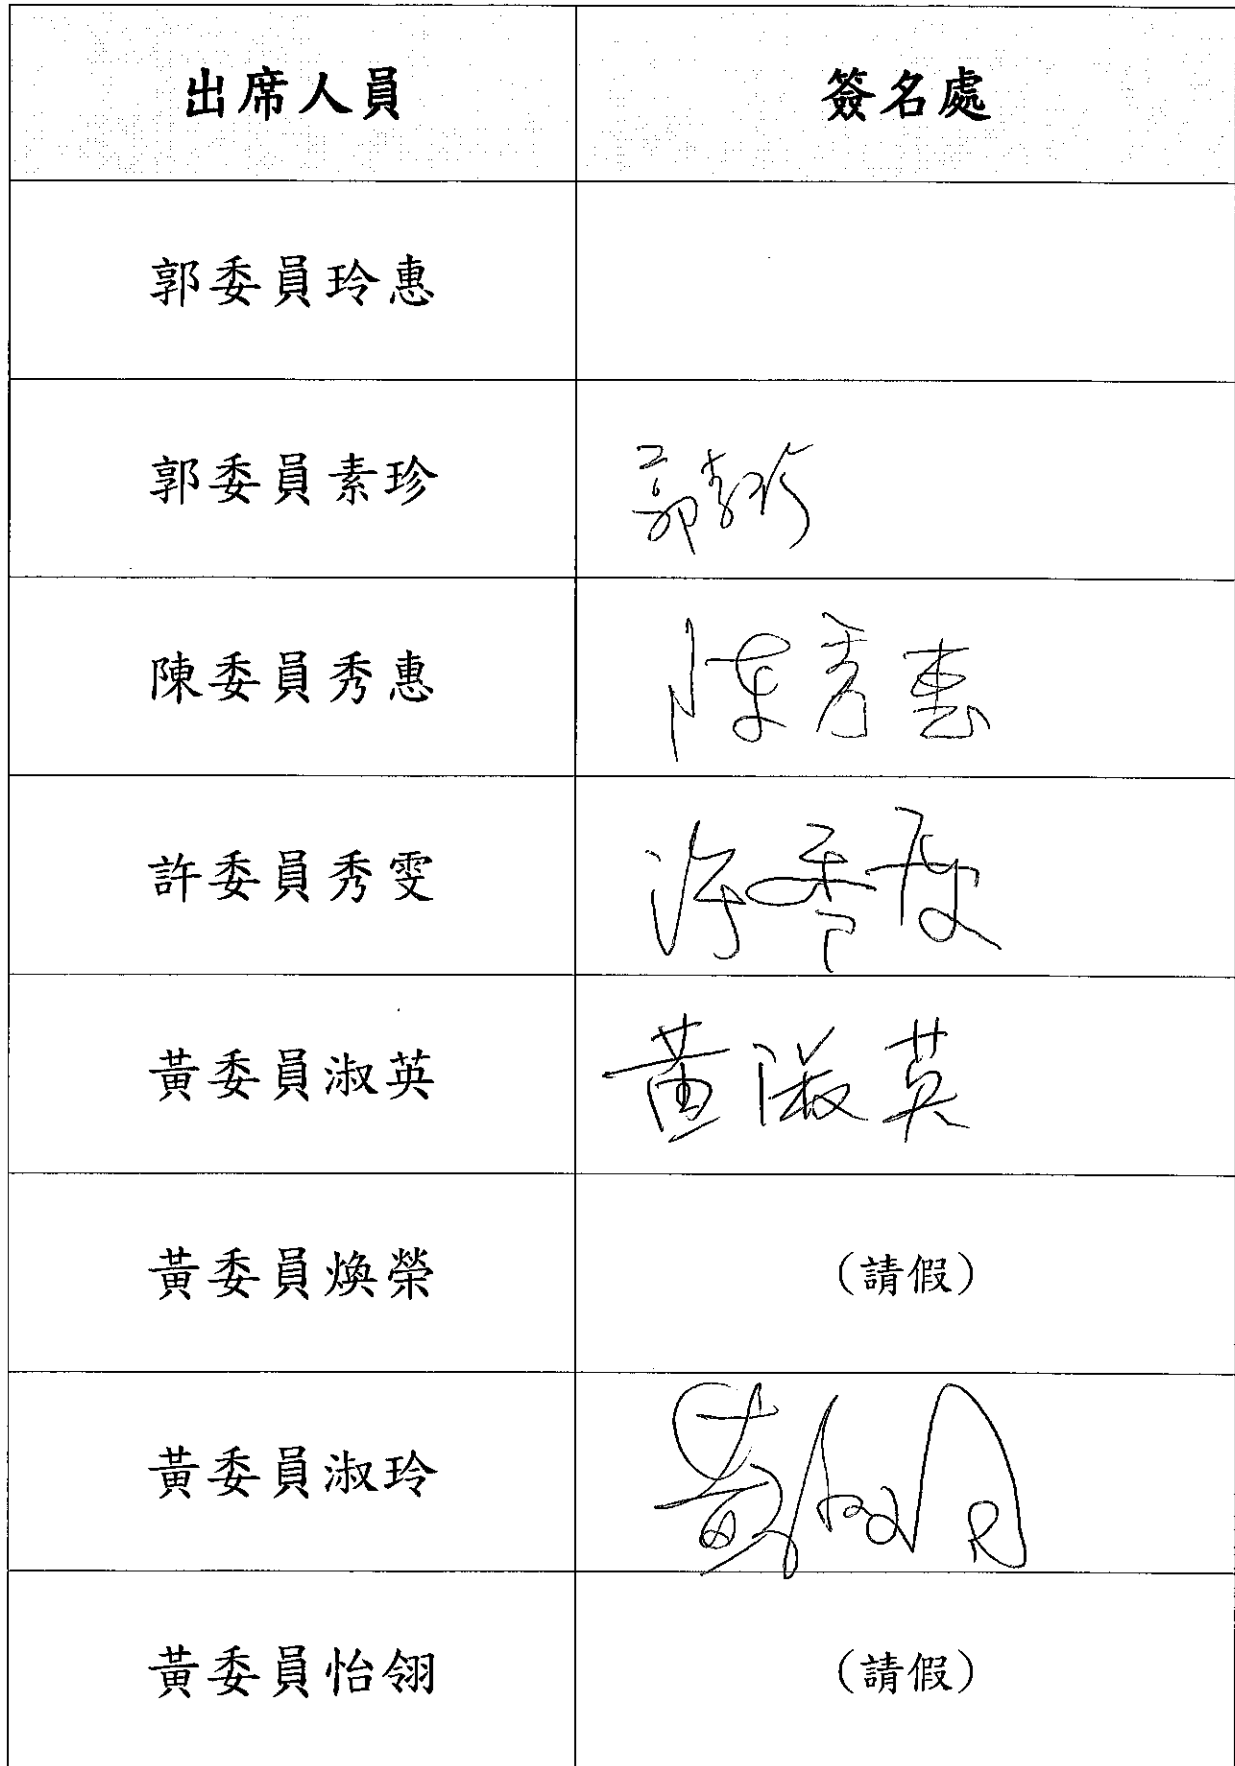 出席人員 簽名處
郭委員玲惠
郭委員素珍 郭素珍
陳委員秀惠 陳秀惠
許委員秀雯 許秀雯
黃委員淑英 黃淑英
黃委員煥榮 （請假）
黃委員淑玲 黃淑玲
黃委員怡翎 （請假）